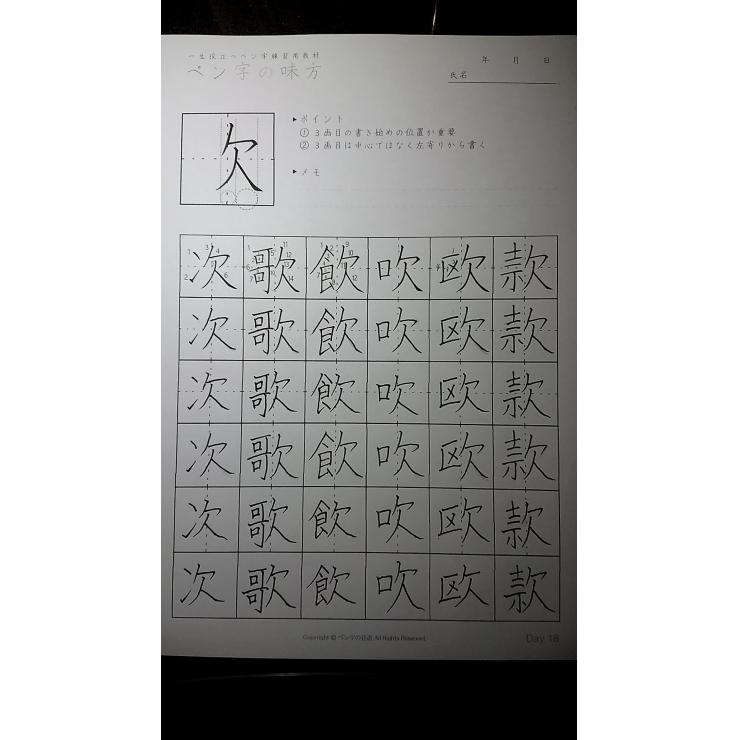 一生役立つペン字練習用教材
ペン字の味方
年 月 日
氏名
欠
▶ポイント
① 3画目の書き始めの位置が重要
② 3画目は中心ではなく左寄りから書く
▶メモ
次 歌 飲 吹 欧 款
次 歌 飲 吹 欧 款
次 歌 飲 吹 欧 款
次 歌 飲 吹 欧 款
次 歌 飲 吹 欧 款
次 歌 飲 吹 欧 款
Copyright © ペン字の日道 All Rights Reserved.
Day 18